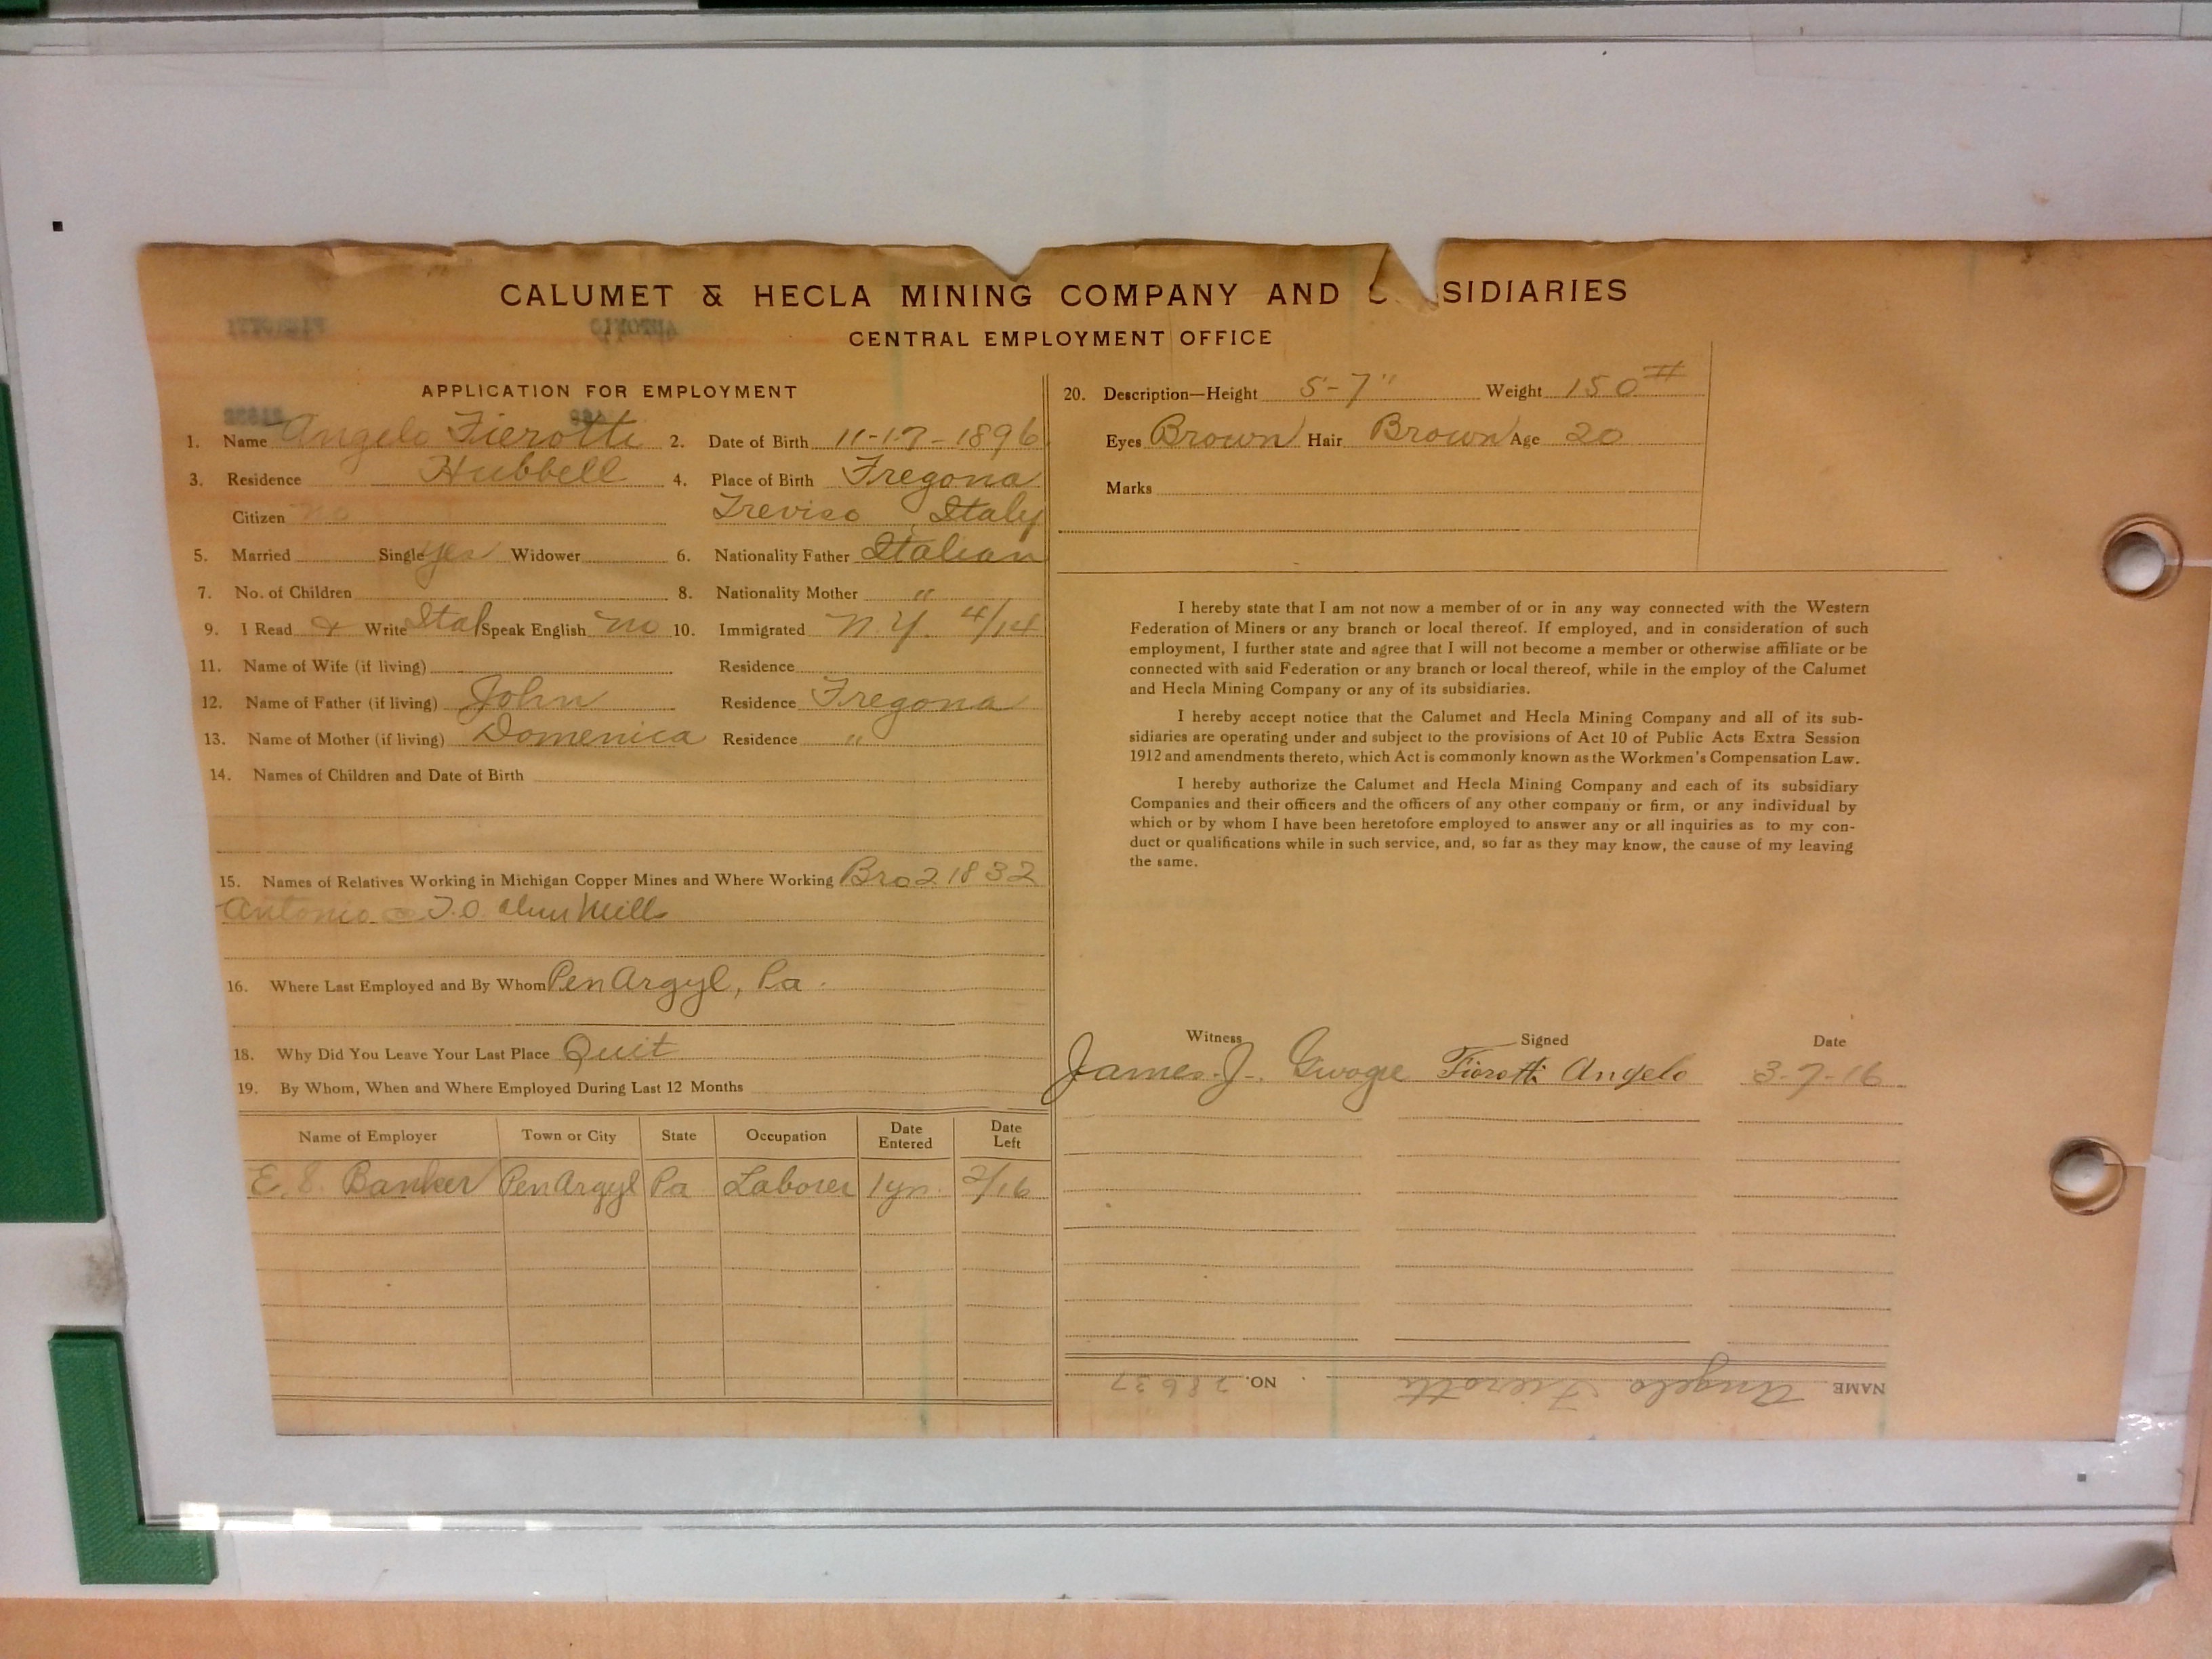 CALUMET & HECLA MINING COMPANY AND SIDIARIES
CENTRAL EMPLOYMENT OFFICE
APPLICATION FOR EMPLOYMENT
1. Name Angelo Fierotti 2. Date of Birth 11-17-1896
3. Residence Hubbell 4. Place of Birth Fregona
Citizen no Treviso, Italy
5. Married Single yes Widower 6. Nationality Father Italian
7. No. of Children 8. Nationality Mother "
9. I Read & Write Ital Speak English no 10. Immigrated N.Y. 4/14
11. Name of Wife (if living) Residence
12. Name of Father (if living) John Residence Fregona
13. Name of Mother (if living) Domenica Residence "
14. Names of Children and Date of Birth
15. Names of Relatives Working in Michigan Copper Mines and Where Working Bro 21832
Antonio Mill
16. Where Last Employed and By Whom Pen Argyl, Pa.
18. Why Did You Leave Your Last Place Quit
19. By Whom, When and Where Employed During Last 12 Months
Name of Employer Town or City State Occupation Date Entered Date Left
E. S. Banker Pen Argyl Pa Laborer 1 yr. 2/16
20. Description—Height 5-7" Weight 150#
Eyes Brown Hair Brown Age 20
Marks
I hereby state that I am not now a member of or in any way connected with the Western
Federation of Miners or any branch or local thereof. If employed, and in consideration of such
employment, I further state and agree that I will not become a member or otherwise affiliate or be
connected with said Federation or any branch or local thereof, while in the employ of the Calumet
and Hecla Mining Company or any of its subsidiaries.
I hereby accept notice that the Calumet and Hecla Mining Company and all of its sub-
sidiaries are operating under and subject to the provisions of Act 10 of Public Acts Extra Session
1912 and amendments thereto, which Act is commonly known as the Workmen's Compensation Law.
I hereby authorize the Calumet and Hecla Mining Company and each of its subsidiary
Companies and their officers and the officers of any other company or firm, or any individual by
which or by whom I have been heretofore employed to answer any or all inquiries as to my con-
duct or qualifications while in such service, and, so far as they may know, the cause of my leaving
the same.
Witness Signed Date
James J. Fiorotti Angelo 3-7-16
NAME Angelo Fierotti NO. 28637